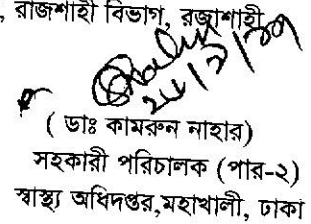 , রাজশাহী বিভাগ, রজাশাহী
২৮/২/১৭
( ডাঃ কামরুন নাহার)
সহকারী পরিচালক (পার-২)
স্বাস্থ্য অধিদপ্তর,মহাখালী, ঢাকা